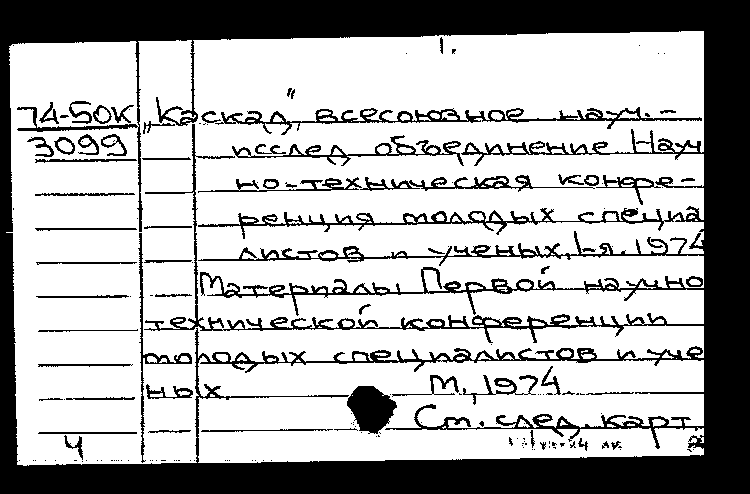 1.
74-50К „Каскад“, всесоюзное науч.-
3099 исслед объединение Науч
но-техническая конфе-
ренция молодых специа
листов и ученых, 1-я. 1974
Материалы Первой научно
технической конференции
молодых специалистов и уче
ных. М., 1974.
См. след. карт.
4